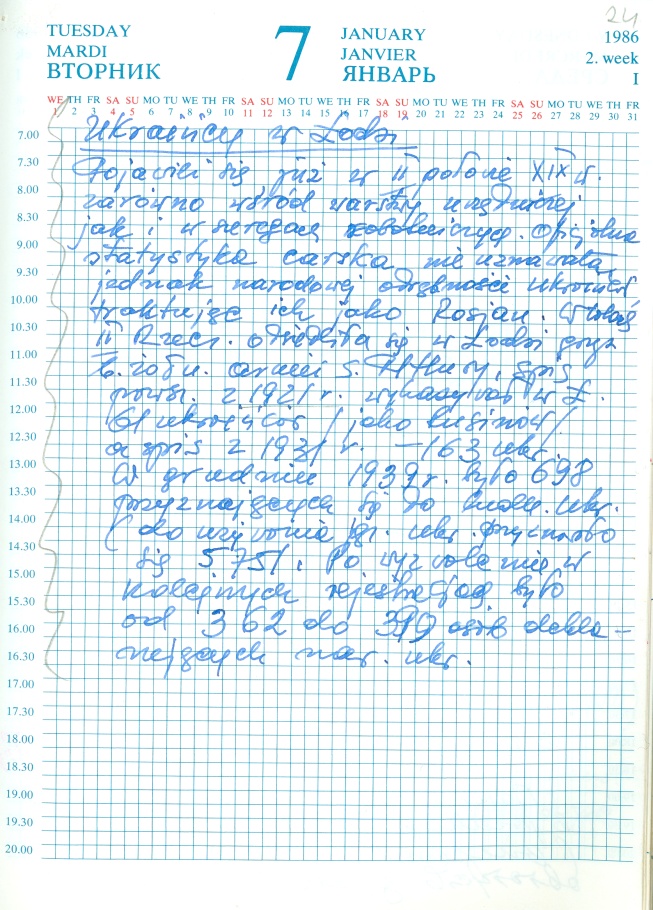 24
TUESDAY
MARDI
ВТОРНИК
7
JANUARY
JANVIER
ЯНВАРЬ
1986
2. week
I
WE TH FR SA SU MO TU WE TH FR SA SU MO TU WE TH FR SA SU MO TU WE TH FR SA SU MO TU WE TH FR
1 2 3 4 5 6 7 8 9 10 11 12 13 14 15 16 17 18 19 20 21 22 23 24 25 26 27 28 29 30 31
7.00 "Ukraińcy w Łodzi"
7.30 Pojawili się już w II połowie XIX w.
8.00 zarówno wśród warstwy urzędniczej
8.30 jak i w szeregach robotniczych. Oficjalna
9.00 statystyka carska nie uznawała
9.30 jednak narodowej odrębności Ukraińców
10.00 traktując ich jako Rosjan. W dobie
10.30 II Rzecz. osiedliła się w Łodzi grupa
11.00 b. żołn. armii S. Petlury, spis
11.30 powsz. z 1921 r. wykazywał w Ł.
12.00 61 ukraińców /jako Rusinów/
12.30 a spis z 1931 r. – 163 ukr.
13.00 W grudniu 1939 r. było 698
13.30 przyznających się do narod. ukr.
14.00 (do używania jęz. ukr. przyznało
14.30 się 575/. Po wyzwoleniu w
15.00 kolejnych rejestracjach było
15.30 od 362 do 399 osób dekla-
16.00 rujących nar. ukr.
16.30
17.00
17.30
18.00
18.30
19.00
19.30
20.00